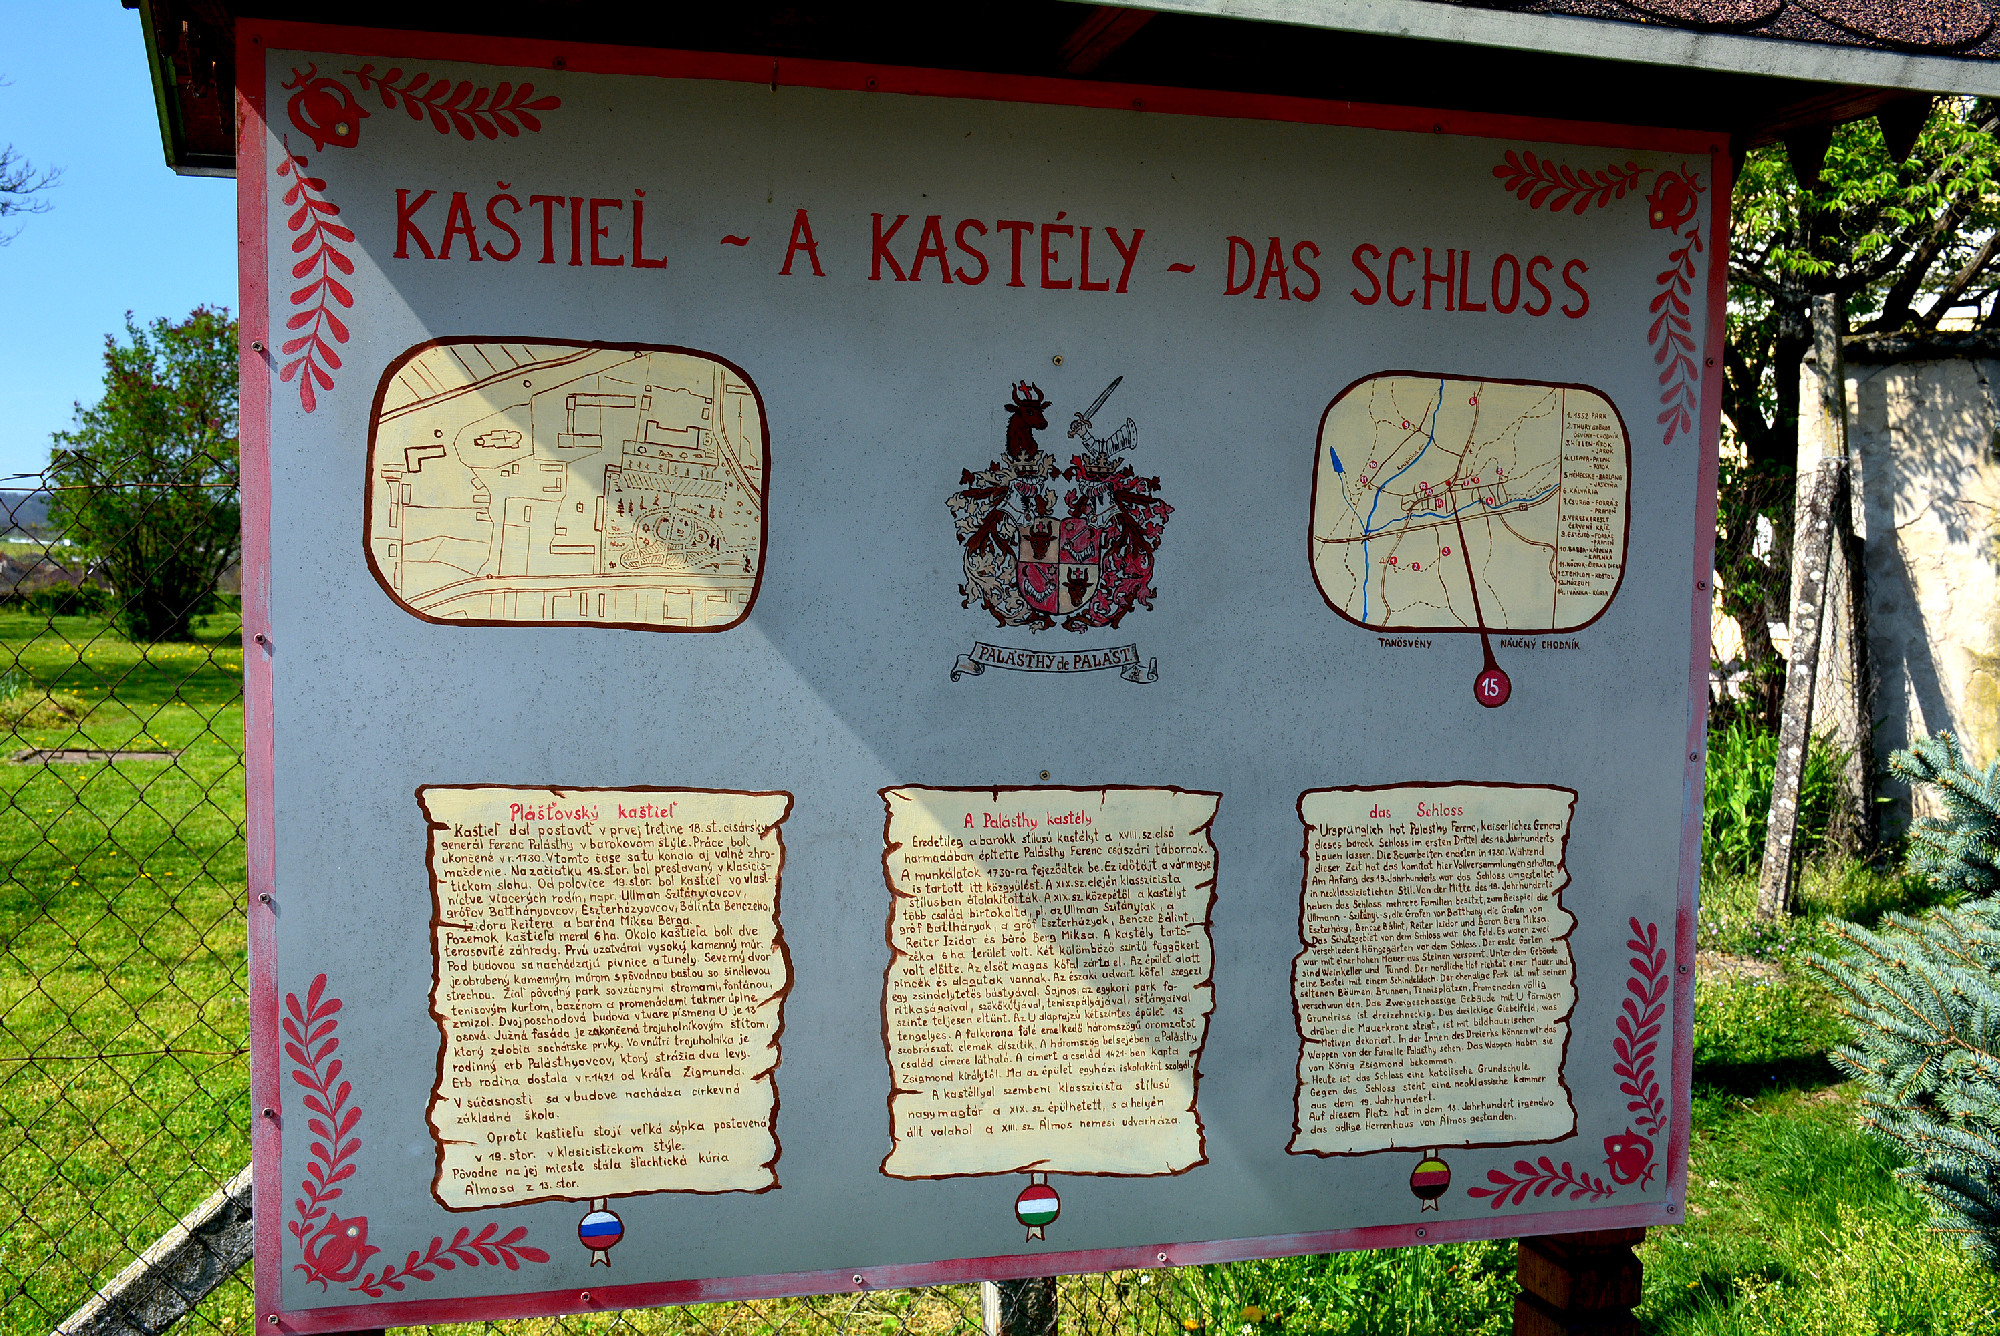 KAŠTIEĽ ~ A KASTÉLY ~ DAS SCHLOSS
1. 1552 PARK
6. KÁLVÁRIA
TANÖSVÉNY NÁUČNÝ CHODNÍK
15
PALÁSTHY de PALÁST
Plášťovský kaštieľ
Kaštieľ dal postaviť v prvej tretine 18. st. cisársky
generál Ferenc Palásthy v barokovom štýle. Práce boli
ukončené v r. 1730. V tomto čase sa tu konalo aj valné zhro-
maždenie. Na začiatku 19. stor. bol prestavaný v klasicis-
tickom slohu. Od polovice 19. stor. bol kaštieľ vo vlast-
níctve viacerých rodín, napr. Ullman Sütányiovcov,
grófov Batthányovcov, Eszterházyovcov, Bálinta Benczeho,
Izidora Reitera a baróna Miksu Berga.
Pozemok kaštieľa meral 6 ha. Okolo kaštieľa boli dve
terasovité záhrady. Prvú uzatváral vysoký kamenný múr.
Pod budovou sa nachádzajú pivnice a tunely. Severný dvor
je obrubený kamenným múrom s pôvodnou baštou so šindľovou
strechou. Žiaľ pôvodný park so vzácnymi stromami, fontánou,
tenisovým kurtom, bazénom a promenádami takmer úplne
zmizol. Dvojposchodová budova v tvare písmena U je 13
osová. Južná fasáda je zakončená trojuholníkovým štítom,
ktorý zdobia sochárske prvky. Vo vnútri trojuholníka je
rodinný erb Palásthyovcov, ktorý strážia dva levy.
Erb rodina dostala v r. 1421 od kráľa Žigmunda.
V súčasnosti sa v budove nachádza cirkevná
základná škola.
Oproti kaštieľu stojí veľká sýpka postavená
v 19. stor. v klasicistickom štýle.
Pôvodne na jej mieste stála šľachtická kúria
Álmosa z 13. stor.
A Palásthy kastély
Eredetileg a barokk stílusú kastélyt a XVIII. sz. első
harmadában építtette Palásthy Ferenc császári tábornok.
A munkálatok 1730-ra fejeződtek be. Ez időtájt a vármegye
is tartott itt közgyűlést. A XIX. sz. elején klasszicista
stílusban átalakították. A XIX. sz. közepétől a kastélyt
több család birtokolta, pl. az Ullman Sütányiak, a
gróf Batthányak, a gróf Eszterházyak, Bencze Bálint,
Reiter Izidor és báró Berg Miksa. A kastély tarto-
zéka 6 ha terület volt. Két különböző szintű függőkert
volt előtte. Az elsőt magas kőfal zárta el. Az épület alatt
pincék és alagutak vannak. Az északi udvart kőfal szegezi
egy zsindelytetős bástyával. Sajnos, az egykori park fa-
ritkaságaival, szökőkútjával, teniszpályájával, sétányaival
szinte teljesen eltűnt. Az U alaprajzú kétszintes épület 13
tengelyes. A falkorona fölé emelkedő háromszögű oromzatot
szobrászati elemek díszítik. A háromszög belsejében a Palásthy
család címere látható. A címert a család 1421-ben kapta
Zsigmond királytól. Ma az épület egyházi iskolaként szolgál.
A kastéllyal szembeni klasszicista stílusú
nagymagtár a XIX. sz. épülhetett, s a helyén
állt valahol a XIII. sz. Álmos nemesi udvarháza.
das Schloss
Ursprünglich hat Palesthy Ferenc, kaiserliches General
dieses barock Schloss im ersten Drittel des 18. Jahrhunderts
bauen lassen. Die Bauarbeiten endeten in 1730. Während
dieser Zeit hat das komitat hier Vollversammlungen gehalten.
Am Anfang des 19. Jahrhunderts war das Schloss umgestaltet
in neoklassizistichen Stil. Von der Mitte des 19. Jahrhunderts
haben das Schloss mehrete Familien besitzt, zum Beispiel die
Ullmann - Sütányi-s, die Grafen von Batthany, die Grafen von
Eszterházy, Bencze Bálint, Reiter Izidor und Baron Berg Miksa.
Das Schutzgebiet von dem Schloss war 6ha Feld. Es waren zwei
verschiedene Hängegärten vor dem Schloss. Der erste Garten
war mit einer hohen Mauer aus Steinen versperrt. Unter dem Gebäude
sind Weinkeller und Tunnel. Der nördliche Hof richtet einer Mauer und
eine Bastei mit einem Schindeldach. Der ehenalige Park ist mit seinen
seltenen Bäumen, Brunnen, Tennisplätzen, Promenaden völlig
verschwunden. Das Zweigeschossige Gebäude mit U förmigen
Grundriss ist dreizehneckig. Das dreieckige Giebelfeld, was
drüber die Mauerkrone steigt, ist mit bildhauerischen
Motiven dekoriert. In der Innen des Dreiecks können wir das
Wappen von der Familie Palasthy sehen. Das Wappen haben sie
von König Zsigmond bekommen.
Heute ist das Schloss eine katolische Grundschule.
Gegen das Schloss steht eine neoklassische kammer
aus dem 19. Jahrhundert.
Auf diesem Platz hat in dem 13. Jahrhundert irgendwo
das adlige Herrenhaus von Álmos gestanden.